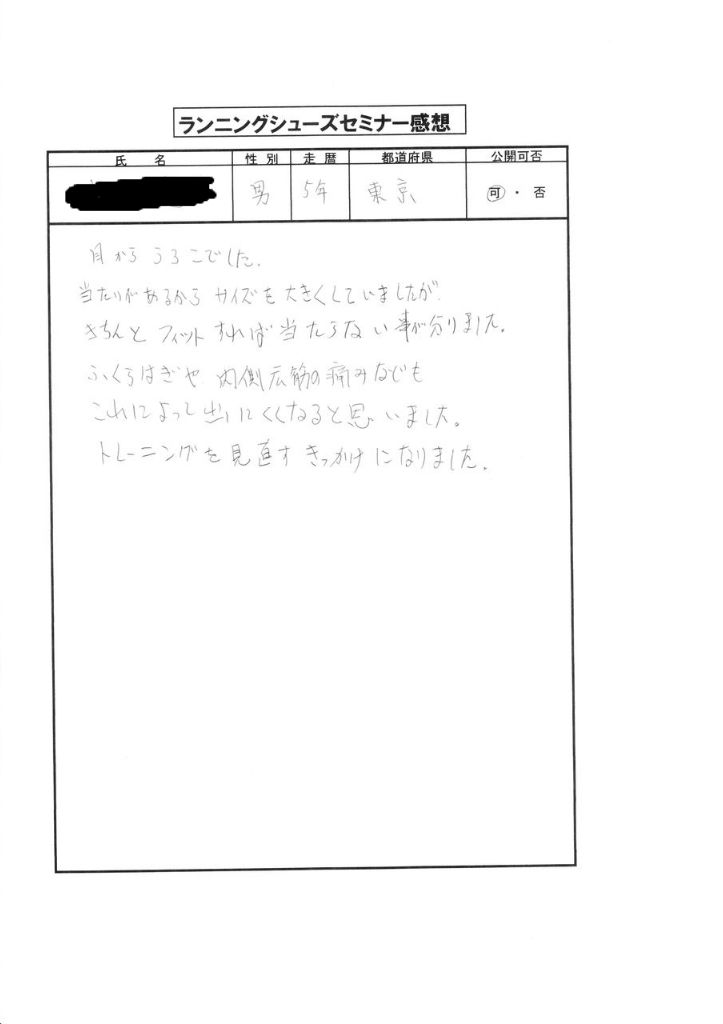 ランニングシューズセミナー感想
氏 名 性 別 走 暦 都道府県 公開可否
男 5年 東京 可 ・ 否
目から うろこでした.
当たりがあるから サイズを大きくしていましたが.
きちんと フィットすれば当たらない事が分りました。
ふくらはぎや 内側広筋の痛みなども
これによって出にくくなると思いました。
トレーニングを見直すきっかけになりました.